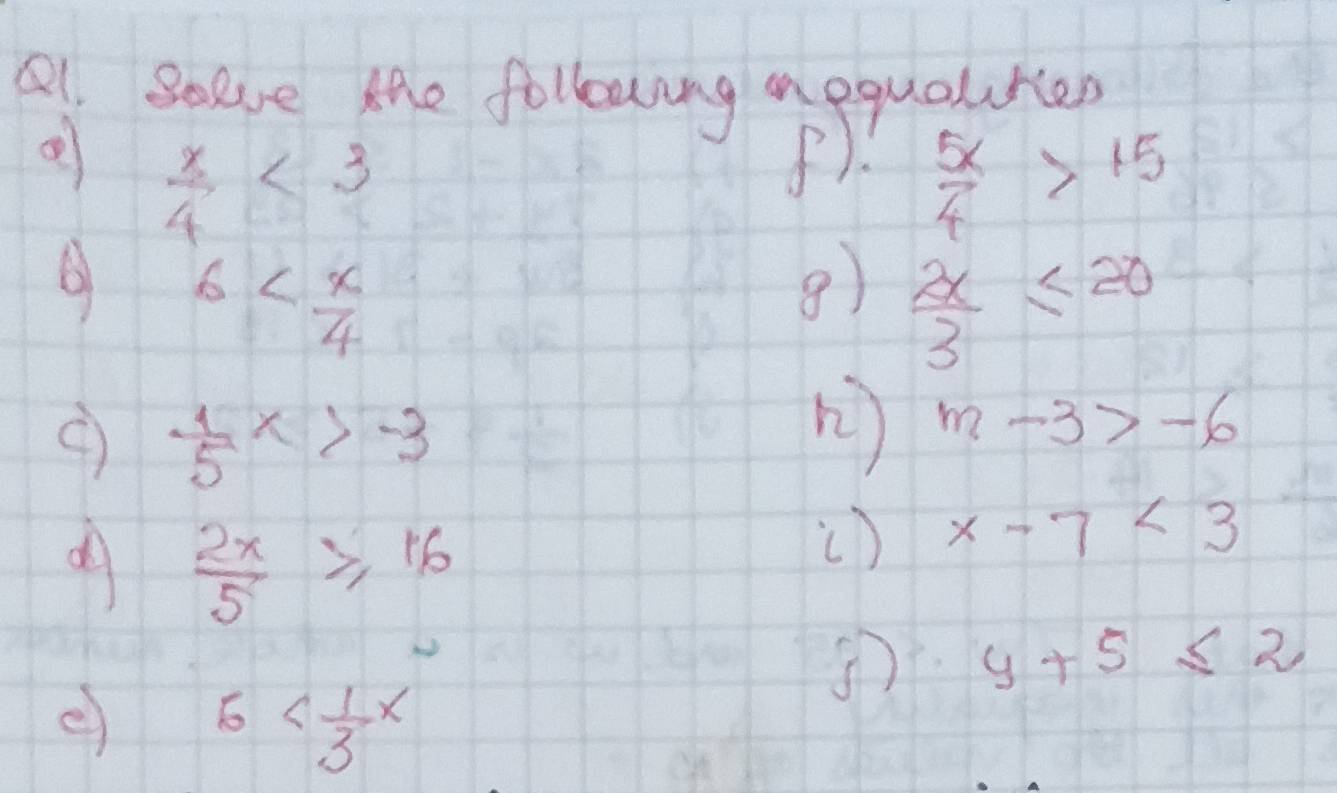 Q1. Solve the following inequalities
a) x/4 < 3
b) 6 < x/4
c) 1/5 x > -3
d) 2x/5 ≥ 16
e) 6 < 1/3 x
f). 5x/4 > 15
g) 2x/3 ≤ 20
h) m - 3 > -6
i) x - 7 < 3
j) y + 5 ≤ 2